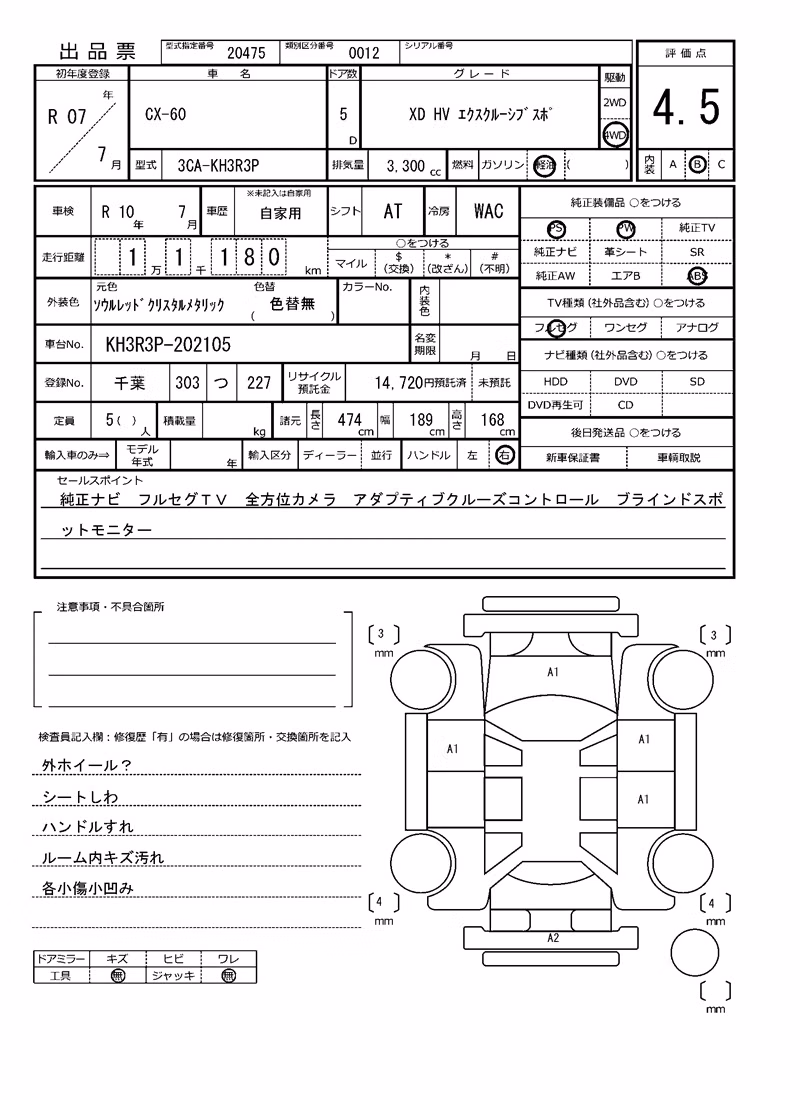 出品票 型式指定番号 20475 類別区分番号 0012 シリアル番号
評価点
初年度登録 車名 ドア数 グレード 駆動
R 07 年 7 月
CX-60
5 D
XD HV エクスクルーシブスポ
2WD
4WD
4.5
型式 3CA-KH3R3P 排気量 3,300 cc 燃料 ガソリン 軽油 ( )
内装 A B C
車検 R 10 年 7 月 車歴 ※未記入は自家用 自家用 シフト AT 冷房 WAC
純正装備品 ○をつける
PS PW 純正TV
純正ナビ 革シート SR
純正AW エアB ABS
走行距離 1 万 1 千 1 8 0 km
○をつける
マイル $(交換) *(改ざん) #(不明)
外装色 元色 ソウルレッドクリスタルメタリック 色替 ( 色替無 ) カラーNo. 内装色
TV種類(社外品含む)○をつける
フルセグ ワンセグ アナログ
車台No. KH3R3P-202105 名変期限 月 日
ナビ種類(社外品含む)○をつける
HDD DVD SD
DVD再生可 CD
登録No. 千葉 303 つ 227 リサイクル預託金 14,720円預託済 未預託
定員 5( ) 人 積載量 kg 諸元 長さ 474 cm 幅 189 cm 高さ 168 cm
後日発送品 ○をつける
新車保証書 車輌取説
輸入車のみ⇒ モデル年式 年 輸入区分 ディーラー 並行 ハンドル 左 右
セールスポイント
純正ナビ フルセグTV 全方位カメラ アダプティブクルーズコントロール ブラインドスポ
ットモニター
注意事項・不具合箇所
3 mm
3 mm
A1
A1
A1
A1
検査員記入欄:修復歴「有」の場合は修復箇所・交換箇所を記入
外ホイール?
シートしわ
ハンドルすれ
ルーム内キズ汚れ
各小傷小凹み
4 mm
4 mm
A2
ドアミラー キズ ヒビ ワレ
工具 無 ジャッキ 無
mm